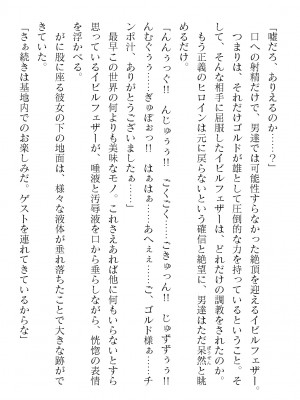 「嘘だろ、ありえるのか……？」
　口への射精だけで、男達では可能性すらなかった絶頂を迎えるイビルフェザー。
　つまりは、それだけゴルドが雄として圧倒的な力を持っているということ。そ
して、そんな相手に屈服しているイビルフェザーは、どれだけの調教をされたの
か。
　もう正義のヒロインは元に戻らないという確信と絶望に、男達はただ呆然と眺
めるだけ。
「んむぐぅぅ……ぎゅぽおっ!!　はぁはぁ……あへぇぇ……ご、ゴルド様ぁ……チ
ンポ汁、ありがとうございましたぁ……」
　最早この世界の何よりも美味なモノ。これさえあれば他に何もいらないとすら
思っているイビルフェザーが、唾液と汚辱液を口から垂らしながら、恍惚の表情
を浮かべる。
　がに股に座る彼女の下の地面は、様々な液体が垂れ落ちたことで大きな跡がで
きていた。
「さぁ続きは基地内でのお楽しみだ。ゲストを連れてきているからな」